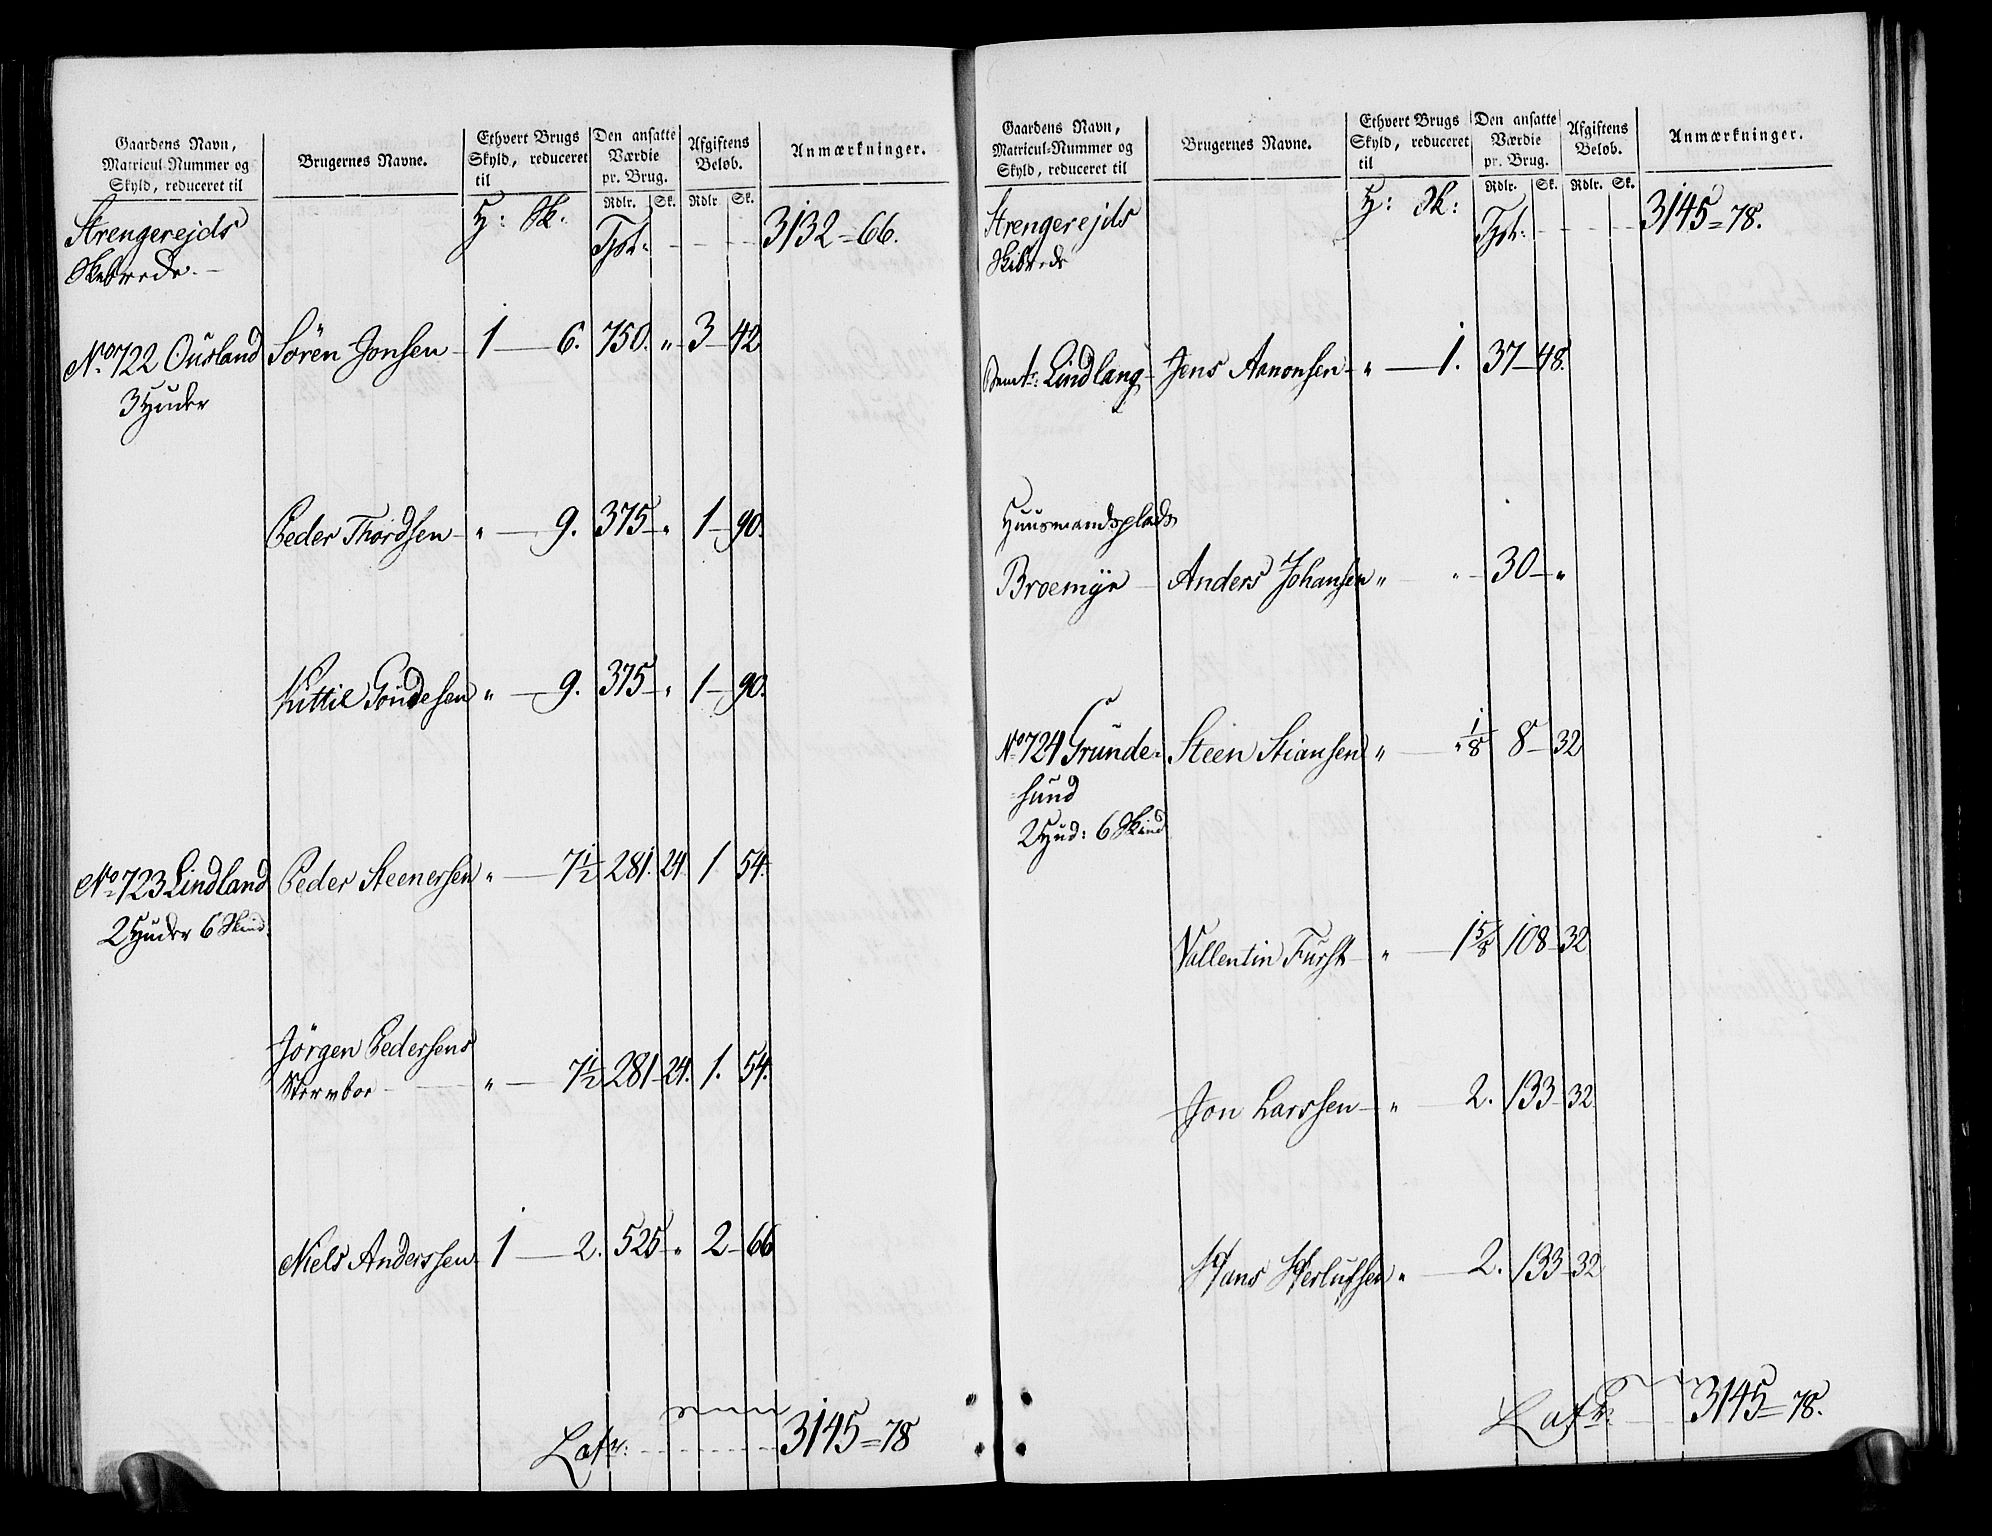 Gaardens Navn, Matricul-Nummer og Skyld, reduceret til
Brugernes Navne.
Ethvert Brugs Skyld, reduceret til
Den ansatte Værdie pr. Brug.
Afgiftens Beløb.
Anmærkninger.
Rdlr. Sk. Rdlr Sk.
Strengerejds H: Sk. Tpt: 3132 = 66.
Skibrede.
No 722 Ousland Sören Jonsen 1 6. 750. " 3 42
3 Huder
Peder Thordsen " 9. 375 " 1 90.
Kittil Goudesen " 9. 375 " 1 90.
No 723 Lindland Peder Steenersen " 7½ 281. 24. 1 54.
2 Huder 6 Skind.
Jörgen Pedersens
" 7½ 281 24. 1. 54.
Niels Anderssen 1 2. 525 " 2 66
Latr: 3145 = 78
Gaardens Navn, Matricul-Nummer og Skyld, reduceret til
Brugernes Navne.
Ethvert Brugs Skyld, reduceret til
Den ansatte Værdie pr. Brug.
Afgiftens Beløb.
Anmærkninger.
Rdlr. Sk. Rdlr. Sk.
Strengerejds H: Sk: Tpt: 3145 = 78.
Skibrede
Bemte: Lindland Jens Aanonsen " 1. 37 48.
Huusmandsplads
Broemyr Anders Johansen " " 30 "
No 724 Grunde- Steen Stiansen " " 1/8 8 32
sund
2 Hud: 6 Skind
Vallentin Furst " 1 5/8 108 32
Jon Larssen " 2. 133 32
Hans Herlufsen " 2. 133 32
Latr: 3145 = 78.